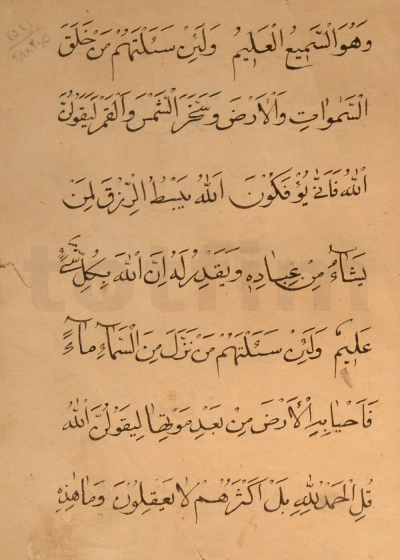 وَهُوَ السَّمِيعُ الْعَلِيمُ وَلَئِنْ سَئَلْتَهُمْ مَنْ خَلَقَ
السَّمٰوَاتِ وَالْأَرْضَ وَسَخَّرَ الشَّمْسَ وَالْقَمَرَ لَيَقُولُنَّ
اللّٰهُ فَاَنّٰى يُؤْفَكُونَ اَللّٰهُ يَبْسُطُ الرِّزْقَ لِمَنْ
يَشَاءُ مِنْ عِبَادِهِ وَيَقْدِرُ لَهُ اِنَّ اللّٰهَ بِكُلِّ شَىْءٍ
عَلِيمٌ وَلَئِنْ سَئَلْتَهُمْ مَنْ نَزَّلَ مِنَ السَّمَاءِ مَاءً
فَاَحْيَا بِهِ الْأَرْضَ مِنْ بَعْدِ مَوْتِهَا لَيَقُولُنَّ اللّٰهُ
قُلِ الْحَمْدُ لِلّٰهِ بَلْ اَكْثَرُهُمْ لَا يَعْقِلُونَ وَمَا هٰذِهِ